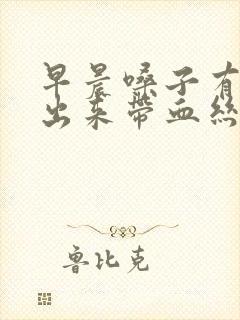 早晨嗓子有
出来带血丝
鲁比克